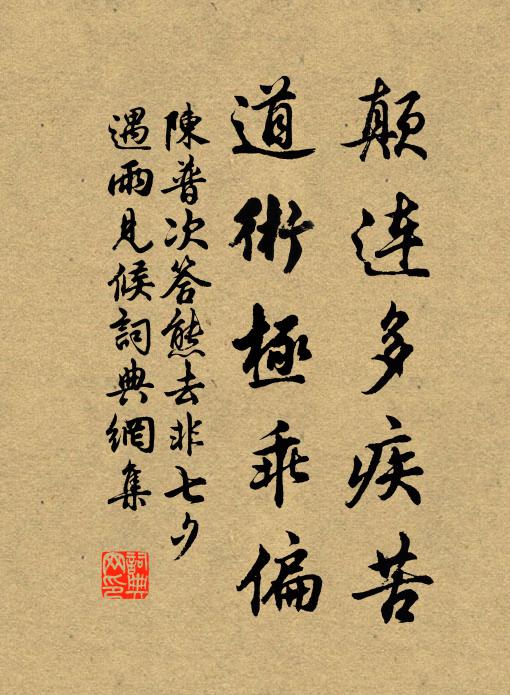 顛連多疾苦
道術極乖偏
陳普次答熊去非七夕
遇雨見候詞典網集
詞典
網印